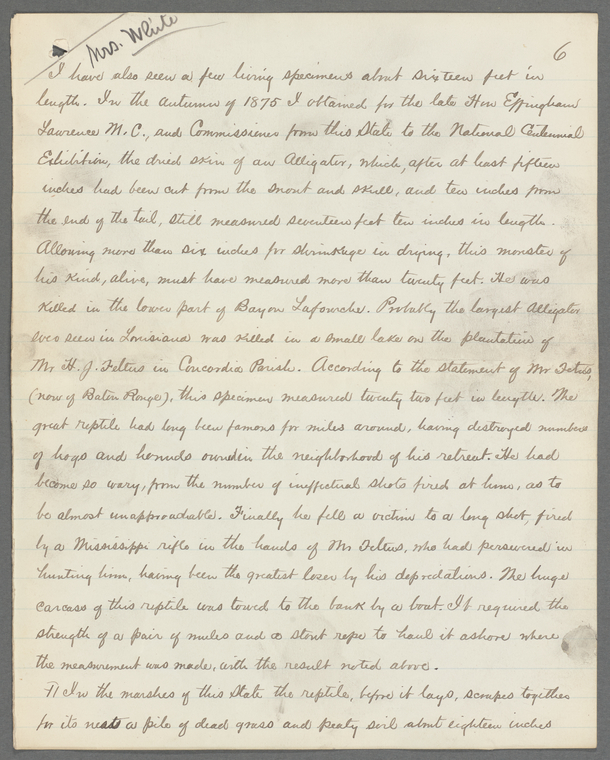 Mrs. White
6
I have also seen a few living specimens about sixteen feet in
length. In the Autumn of 1875 I obtained for the late Hon Effingham
Lawrence M.C., and Commissioner from this State to the National Centennial
Exhibition, the dried skin of an Alligator, which, after at least fifteen
inches had been cut from the snout and skull, and ten inches from
the end of the tail, still measured seventeen feet ten inches in length.
Allowing more than six inches for shrinkage in drying, this monster of
his kind, alive, must have measured more than twenty feet. He was
killed in the lower part of Bayou Lafourche. Probably the largest Alligator
ever seen in Louisiana was killed in a small lake on the plantation of
Mr H. J. Feltus in Concordia Parish. According to the statement of Mr Feltus,
(now of Baton Rouge), this specimen measured twenty two feet in length. The
great reptile had long been famous for miles around, having destroyed numbers
of hogs and hounds owned in the neighborhood of his retreat. He had
become so wary, from the number of ineffectual shots fired at him, as to
be almost unapproachable. Finally he fell a victim to a long shot, fired
by a Mississippi rifle in the hands of Mr Feltus, who had persevered in
hunting him, having been the greatest loser by his depredations. The huge
carcass of this reptile was towed to the bank by a boat. It required the
strength of a pair of mules and a stout rope to haul it ashore where
the measurement was made, with the result noted above.
¶ In the marshes of this State the reptile, before it lays, scrapes together
for its nests a pile of dead grass and peaty soil about eighteen inches